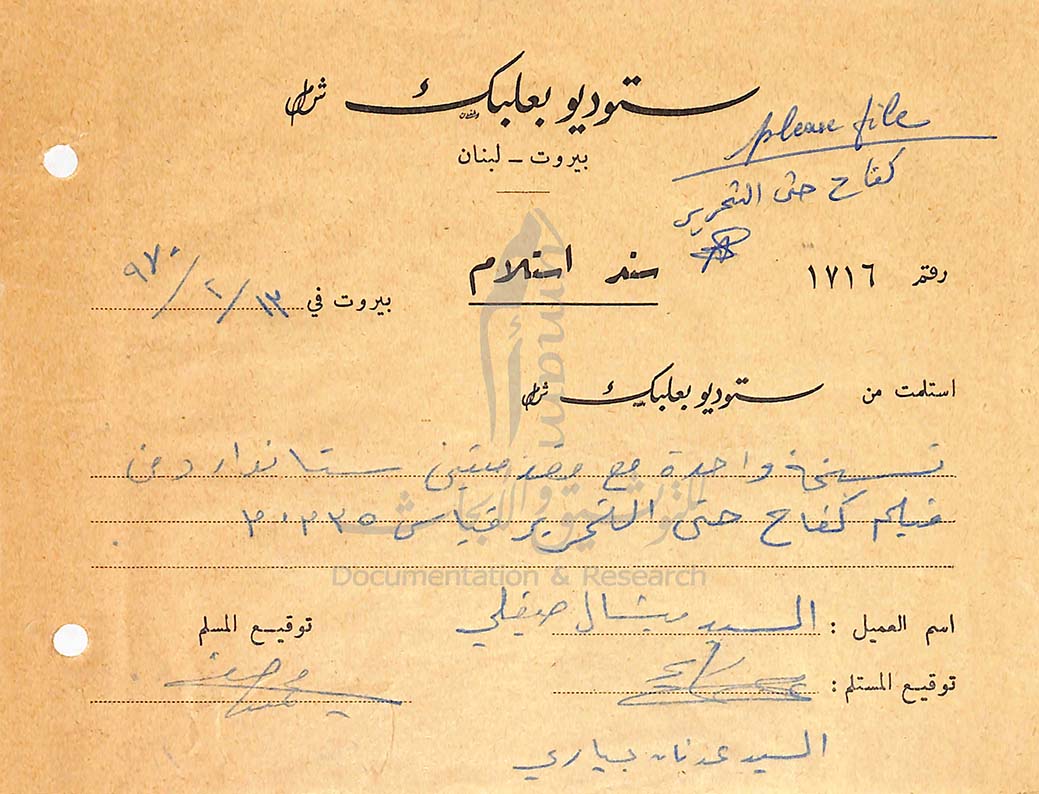 ستوديو بعلبك ش م ل
please file
بيروت - لبنان
كفاح حتى التحرير
رقم ١٧١٦
سند استلام
بيروت في ١٣ / ٢ / ٩٧٠
استلمت من ستوديو بعلبك ش م ل
نسخة واحدة مع مقدمتين ستاندارد من
فيلم كفاح حتى التحرير قياس ٣٥
umam
أمم
للتوثيق والأبحاث
Documentation & Research
اسم العميل : السيد ميشال صيقلي
توقيع المسلم
توقيع المستلم :
السيد عدنان جباري